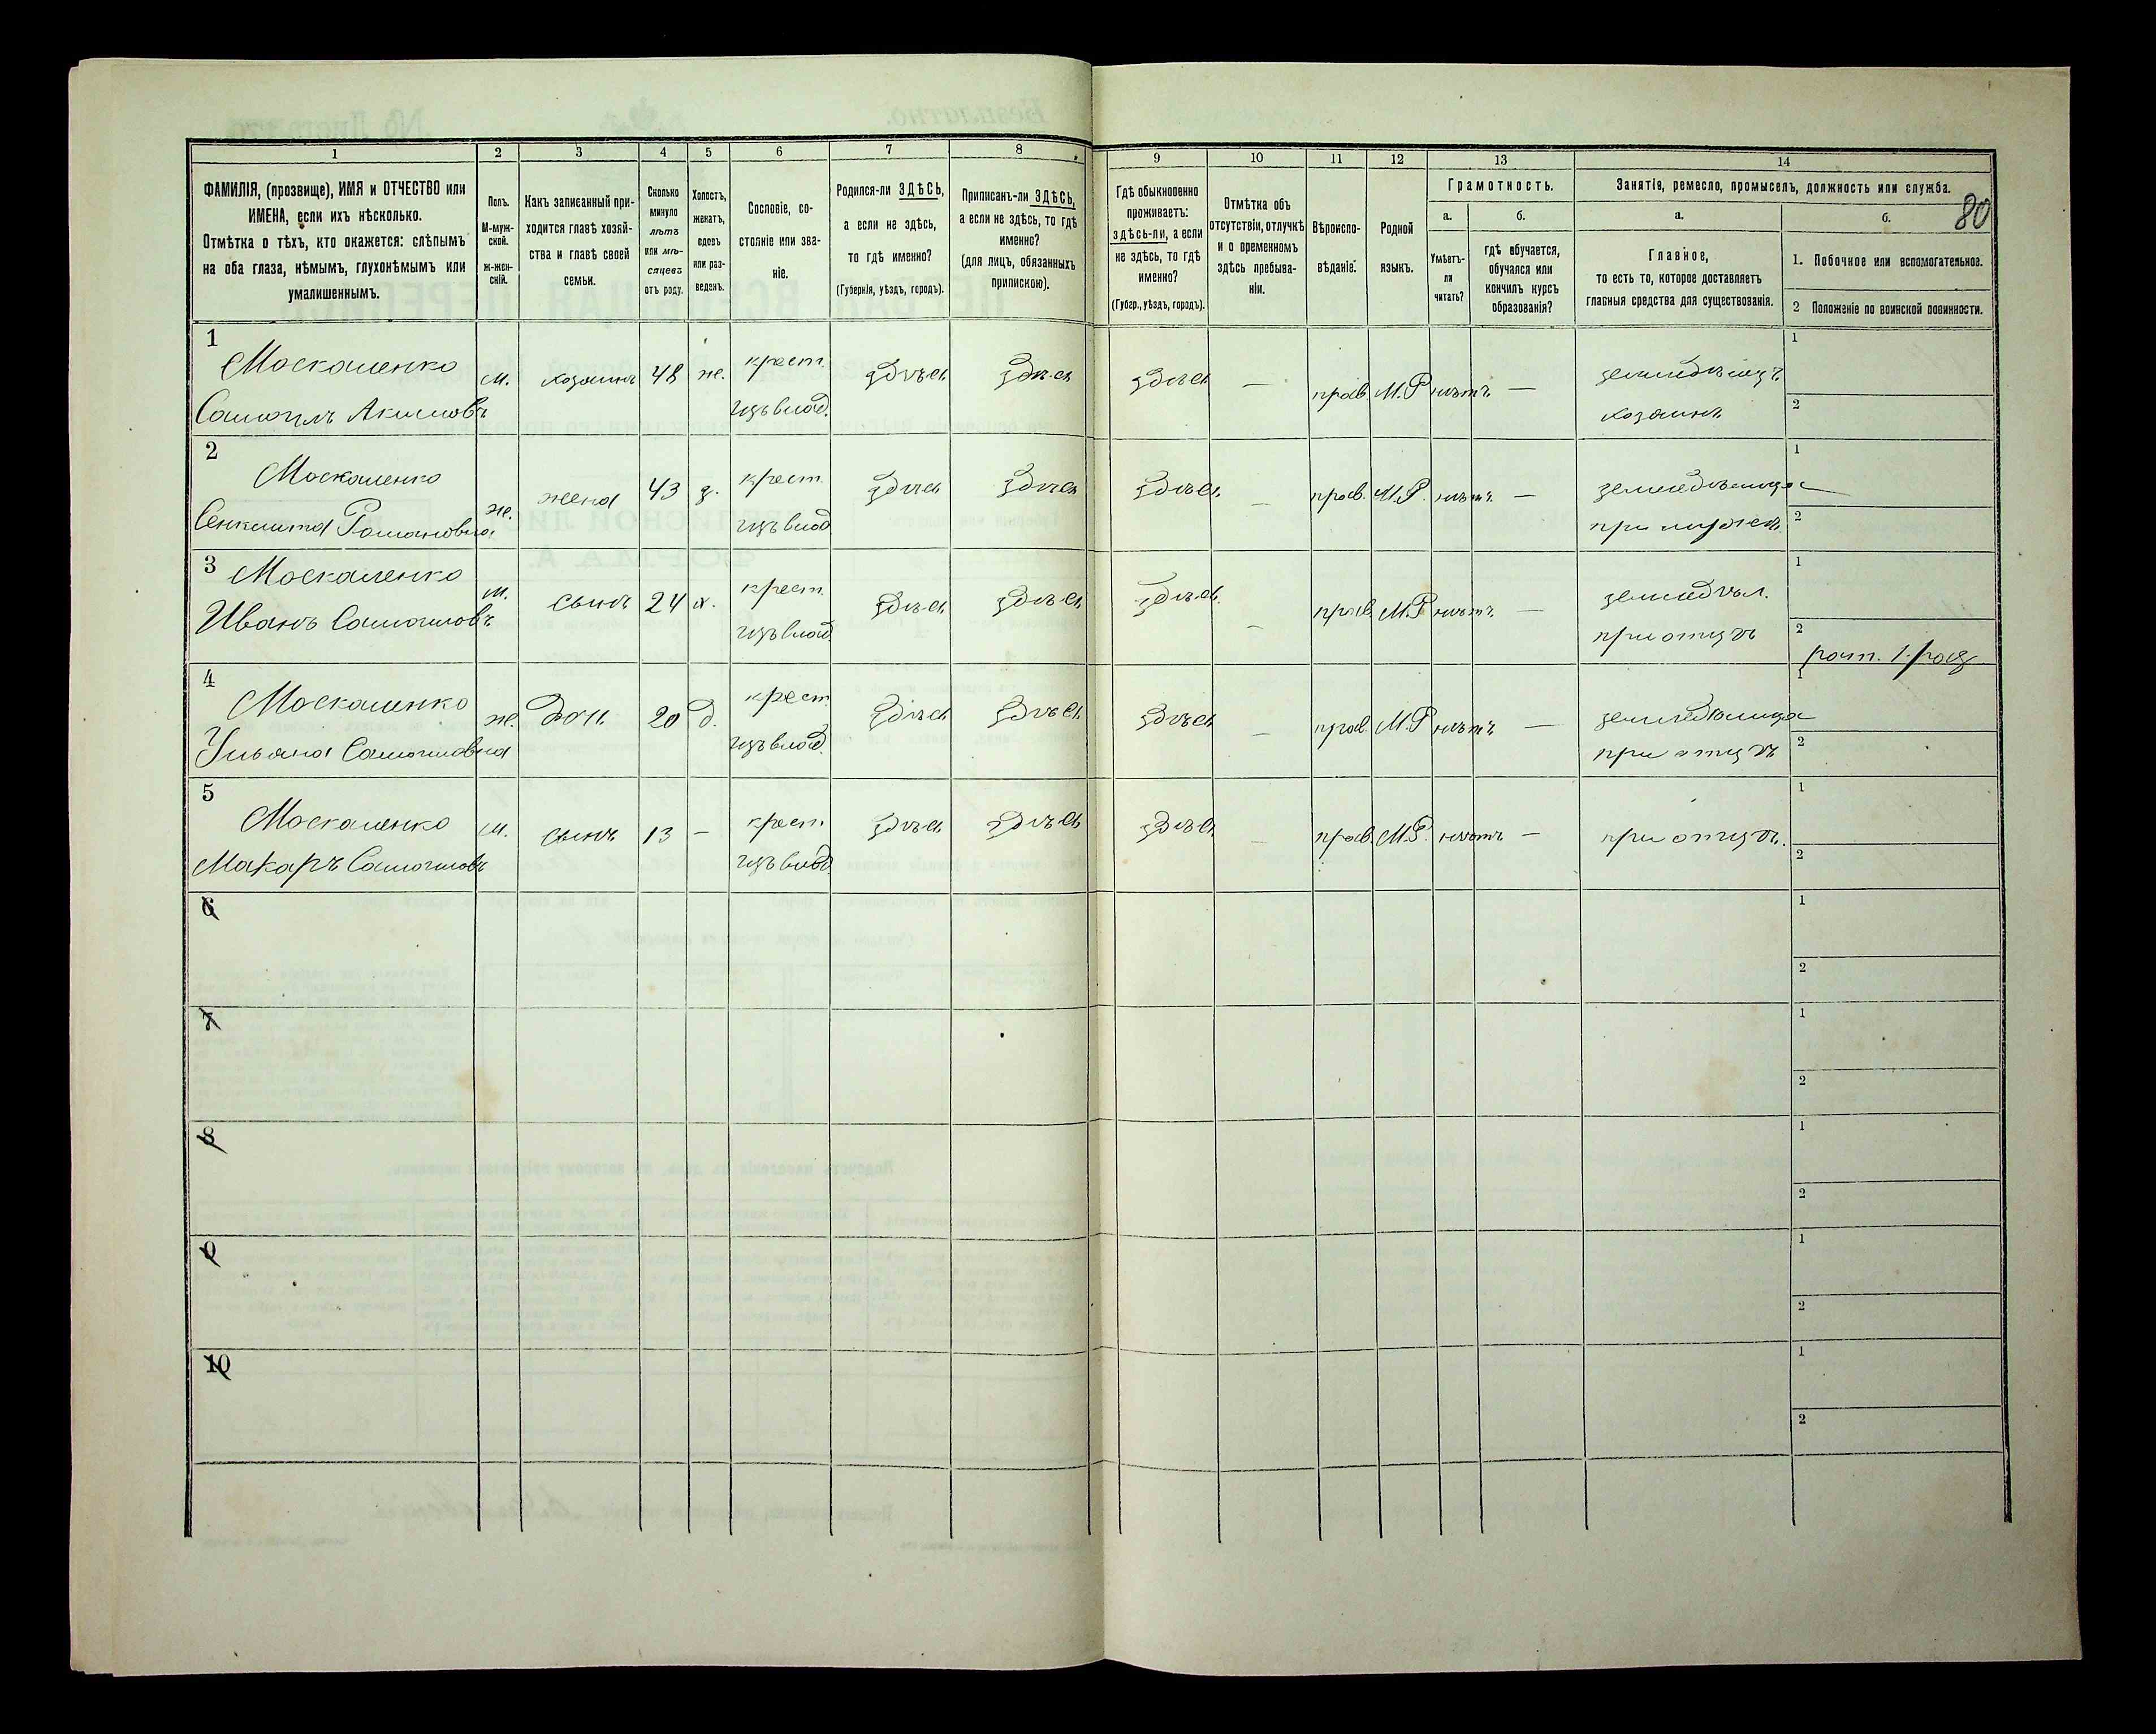 80
1
2
3
4
5
6
7
8
9
10
11
12
13
14
ФАМИЛІЯ, (прозвище), ИМЯ и ОТЧЕСТВО или
ИМЕНА, если ихъ нѣсколько.
Отмѣтка о тѣхъ, кто окажется: слѣпымъ
на оба глаза, нѣмымъ, глухонѣмымъ или
умалишеннымъ.
Полъ.
М-муж-
ской.
ж-жен-
скій.
Какъ записанный при-
ходится главѣ хозяй-
ства и главѣ своей
семьи.
Сколько
минуло
лѣтъ
или мѣ-
сяцевъ
отъ роду.
Холостъ,
женатъ,
вдовъ
или раз-
веденъ.
Сословіе, со-
стояніе или зва-
ніе.
Родился-ли ЗДѢСЬ,
а если не здѣсь,
то гдѣ именно?
(Губернія, уѣздъ, городъ).
Приписанъ-ли ЗДѢСЬ,
а если не здѣсь, то гдѣ
именно?
(для лицъ, обязанныхъ
припискою).
Гдѣ обыкновенно
проживаетъ:
здѣсь-ли, а если
не здѣсь, то гдѣ
именно?
(Губер., уѣздъ, городъ).
Отмѣтка объ
отсутствіи, отлучкѣ
и о временномъ
здѣсь пребыва-
ніи.
Вѣроиспо-
вѣданіе.
Родной
языкъ.
Грамотность.
а.
б.
Умѣетъ-
ли
читать?
гдѣ обучается,
обучался или
кончилъ курсъ
образованія?
Занятіе, ремесло, промыселъ, должность или служба.
а.
б.
Главное,
то есть то, которое доставляетъ
главныя средства для существованія.
1. Побочное или вспомогательное.
2 Положеніе по воинской повинности.
1
Москаленко
Самоилъ Акимовъ
м.
хозяинъ
48
же.
крест.
изъ влад.
здѣсь
здѣсь
здѣсь
—
прав.
М.Р
нѣтъ
—
земледѣлецъ
хозяинъ
1
2
2
Москаленко
Романовна
же.
жена
43
з.
крест.
изъ влад
здѣсь
здѣсь
здѣсь
—
прав.
М.Р.
нѣтъ
—
земледѣлица
при мужѣ
1
2
3
Москаленко
Иванъ Самоиловъ
м.
сынъ
24
х.
крест.
изъ влад
здѣсь
здѣсь
здѣсь.
—
прав.
М.Р
нѣтъ
—
земледѣл.
при отцѣ
1
2
рат. 1. раз.
4
Москаленко
Ульяна Самоиловна
же.
доч.
20
д.
крест
изъ влад.
здѣсь
здѣсь
здѣсь
—
прав.
М.Р
нѣтъ
—
земледѣлица
при отцѣ
1
2
5
Москаленко
Макаръ Самоиловъ
м.
сынъ
13
—
крест.
изъ влад.
здѣсь
здѣсь
здѣсь
—
прав.
М.Р.
нѣтъ
—
при отцѣ.
1
2
6
1
2
7
1
2
8
1
2
9
1
2
10
1
2